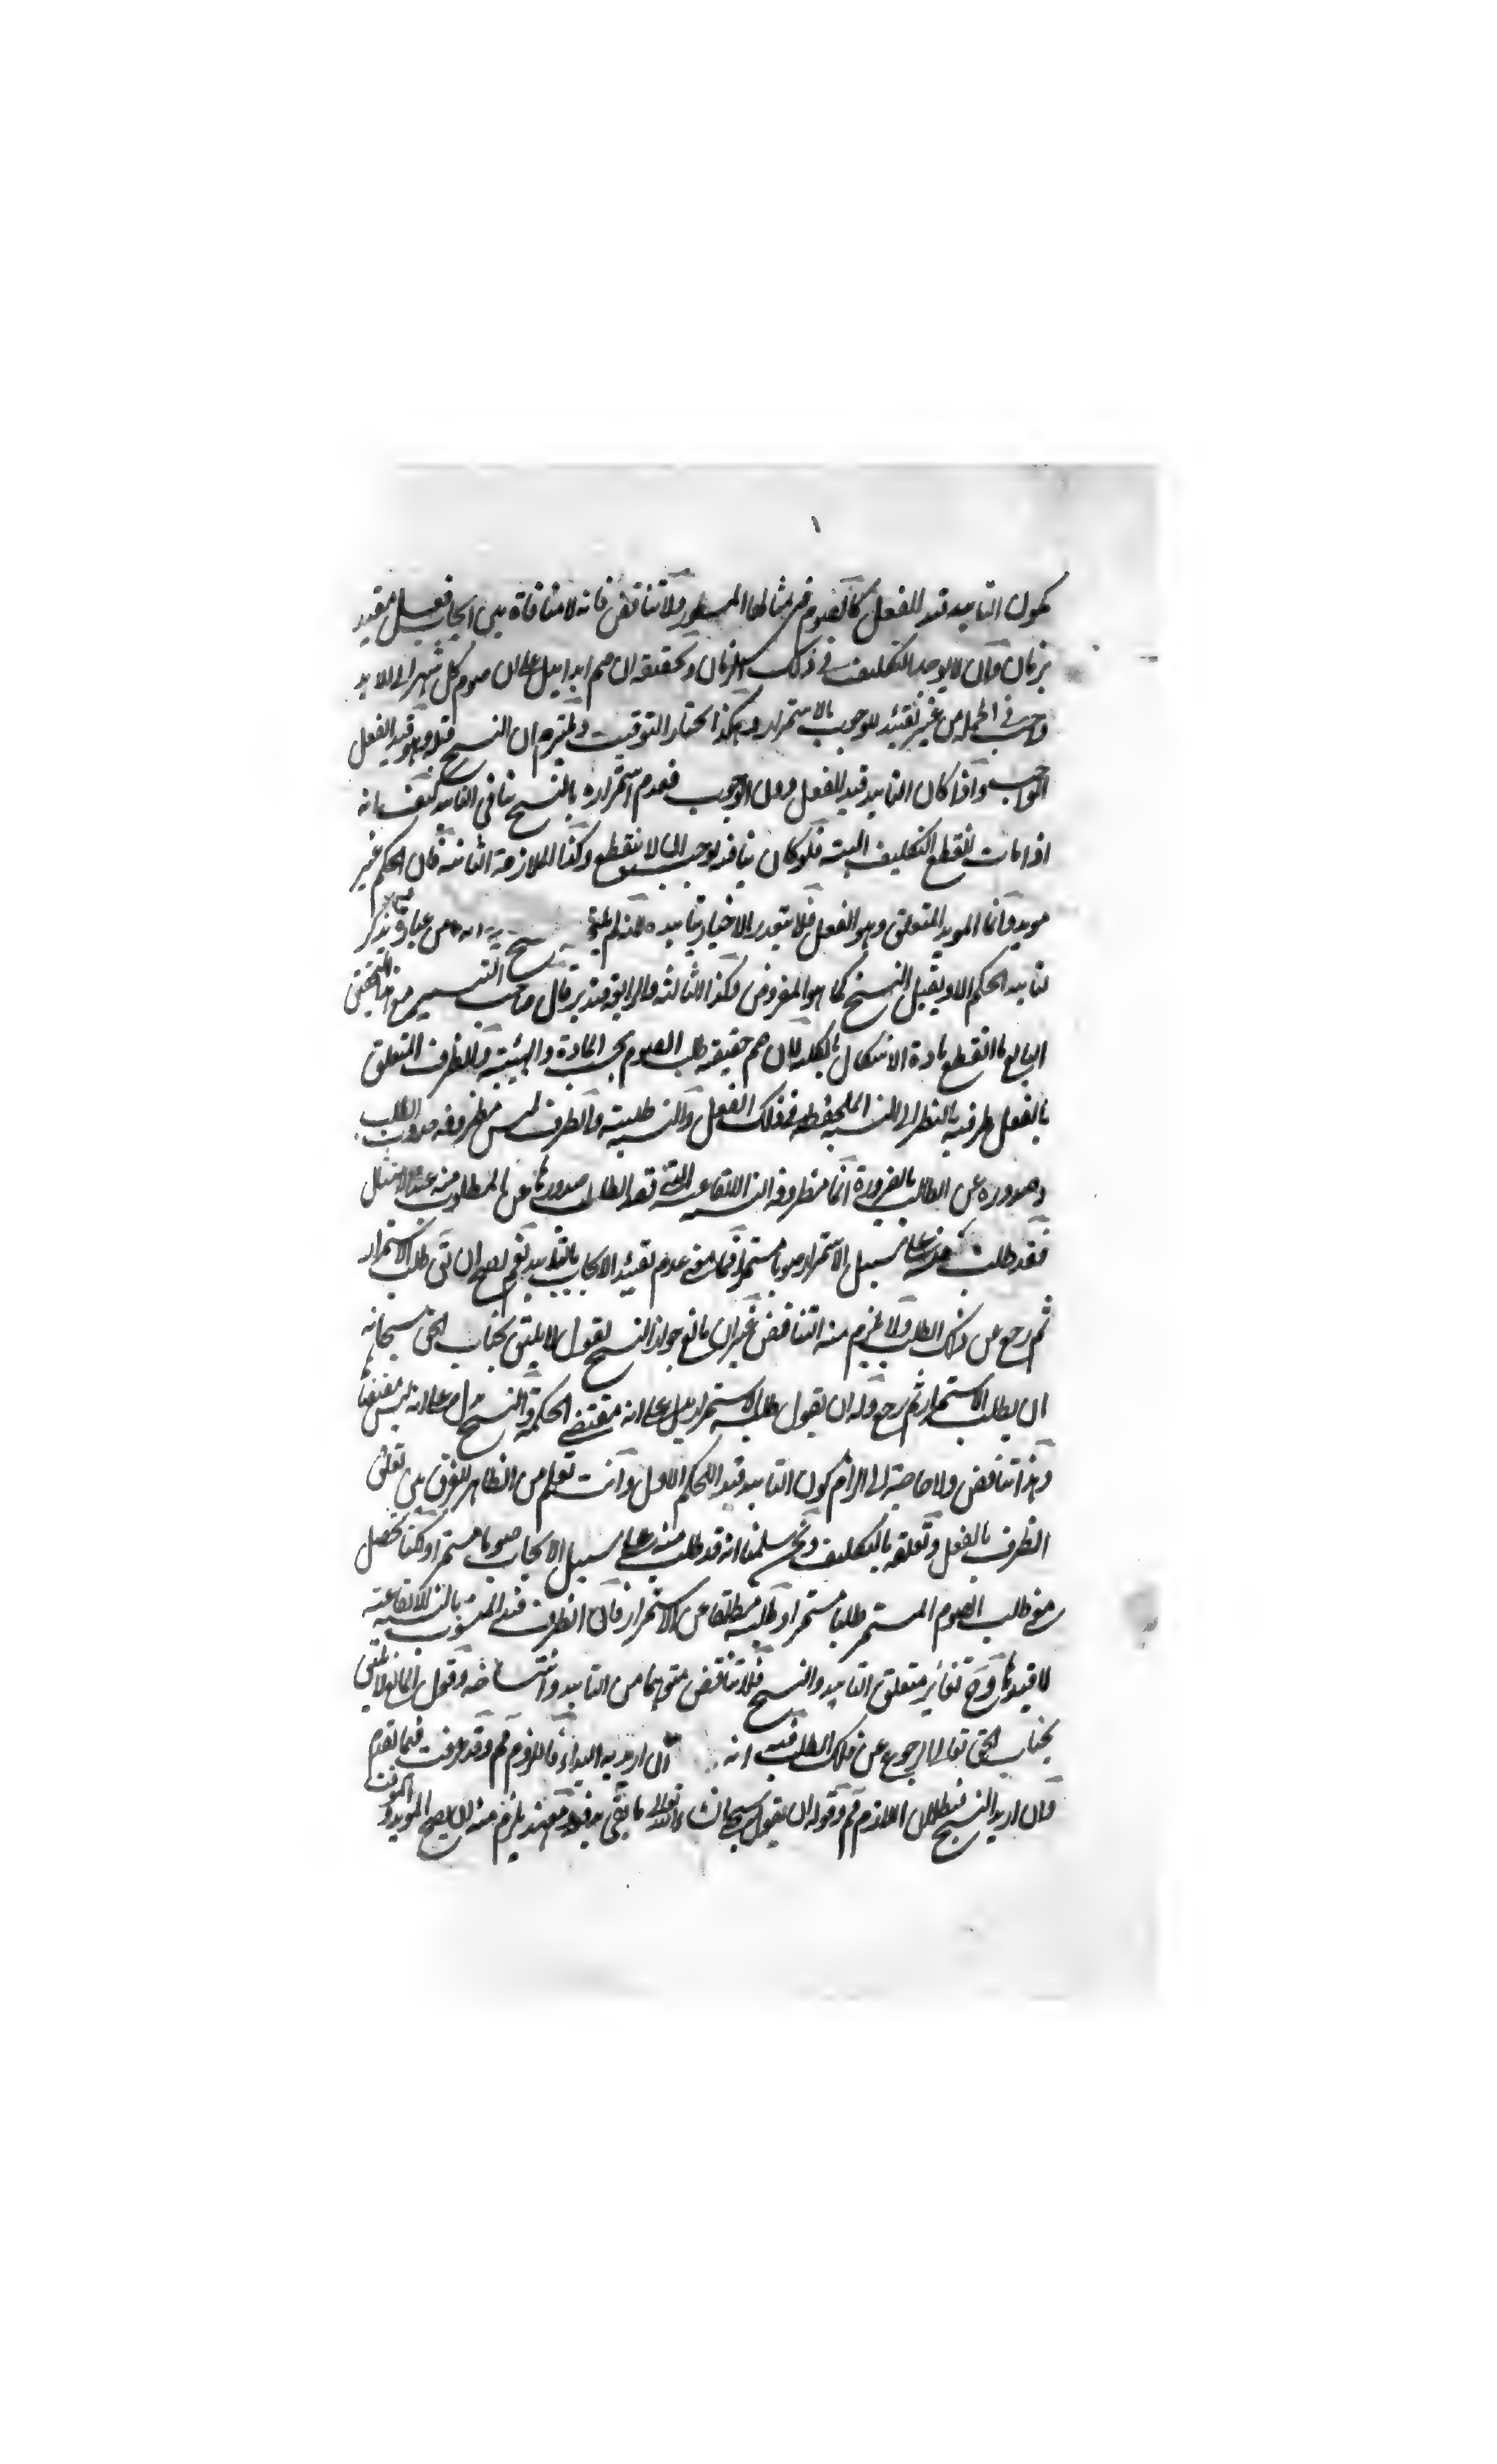 بكون التابيد قيد الفعل كالصوم في مثالها المسطور ولا تناقض فانه لا منافاة بين ايجاب فعل مقيد
بزمان وان لا يوجد التكليف في ذلك الزمان وتحقيقه ان صم ابدا يدل على ان صوم كل شهر الى الابد
واجب في الجملة من غير تقييد للوجوب بالاستمرار وهكذا التوقيت ان النسخ قبله وهو قيد الفعل
الواجب واذا كان التابيد قيد الفعل دون الوجوب فعدم استمراره بالنسخ ينافي التابيد كيف فانه
اذا مات انقطع التكليف البتة فلو كان ينافيه لوجب ان لا ينقطع وكذا الملازمة الثانية فان الحكم غير
مويد وانما المويد المتعلق وهو الفعل فلا يتعذر الاخبار بتابيده من عبارة
تابيد الحكم الاول يقبل النسخ كما هو المفروض وكذا الثالثة والرابعة فتدبر قال صاحب مع هذا التحقيق
البالغ ما انقطع مادة الاشكال بالكلية لان صم حقيقة طلب الصوم بحسب المادة والهيئة والظرف المتعلق
بالفعل ظرفيته بالنظر الى النسبة الملحوظة في ذلك الفعل والنسبة طلبية والظرف ليس مظروفه حدوث الطلب
وصدوره عن الطالب بالضرورة انما مظروفه النسبة الايقاعية التي قصد الطالب صدورها عن المطلوب منه عند الامتثال
فقد طلب منه على سبيل الاستمرار صوما مستمرا فما معنى عدم تقييد الايجاب بالتابيد نعم يصح ان يقى طلب الاستمرار
ثم رجع عن ذلك الطلب ولا يلزم منه التناقض غير ان مانع جواز النسخ يقول لا يليق بجناب الحق سبحانه
ان يطلب الاستمرار ثم رجع وله ان يقول طلب الاستمرار يدل على انه مقتضى الحكمة والنسخ يدل على انه ليس مقتضاها
وهذا تناقض ولا حاجة الى الزام كون التابيد قيد الحكم الاول وانت تعلم من الظاهر الفرق بين تعلق
الظرف بالفعل وتعلقه بالتكليف ونحن سلمنا انه قد طلب منه على سبيل الايجاب صوما مستمرا ولكنا نحصل
معنى طالب الصوم المستمر طلبا مستمرا وطلبه مطلقا عن الاستمرار فان الظرف قيد المنسوب بالنسبة الايقاعية
لا قيدها وح تغاير متعلق التابيد والنسخ فلا تناقض متوهما من التابيد وانتساخه وقول المانع لا يليق
بجناب الحق تعالى الرجوع عن ذلك الطلب فيه انه ان اريد به البداء فاللزوم مم وقد عرفت فيما تقدم
وان اريد النسخ فبطلان اللازم مم وقوله ان يقول سبحانه تعالى يلزم منه ان يصح المويد والموقت